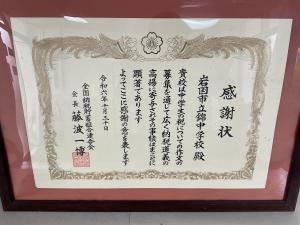 感謝状
岩国市立錦中学校殿
貴校は中学生の税についての作文の
募集を通じて広く納税道義の
高揚に寄与されその事績はまことに
顕著であります
よってここに感謝の意を表します
令和六年十月三十日
全国納税貯蓄組合連合会
会長 藤波一博